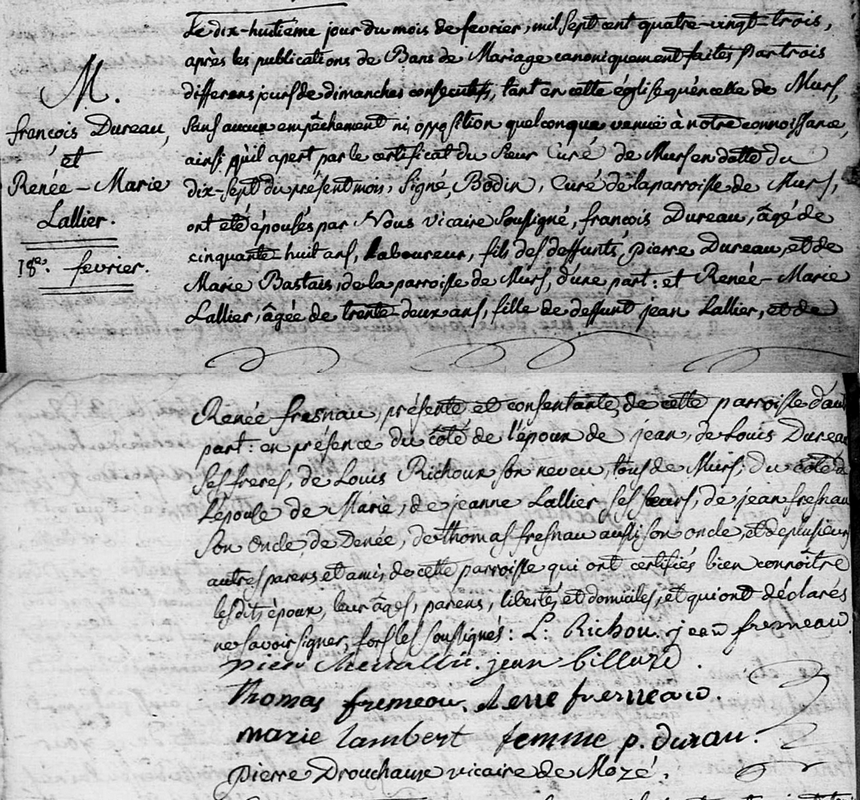 M.
françois Dureau,
et
Renée-Marie
Lallier.
18e. fevrier.
Le dix-huitiéme jour du mois de fevrier, mil sept cent quatre-vingt-trois,
après les publications de Bans de Mariage canoniquement faites par trois
differens jours de dimanches consecutifs, tant en cette église qu'en celle de Murs,
sans aucun empêchement ni opposition quelconque venuë à notre connoissance,
ainsi qu'il apert par le certificat du Sieur Curé de Murs en datte du
dix-sept du présent mois, signé, Bodin, Curé de la parroisse de Murs,
ont eté épousés par Nous vicaire soussigné, françois Dureau, âgé de
cinquante-huit ans, laboureur, fils des deffunts pierre Dureau, et de
Marie Bastais, de la parroisse de Murs, d'une part: et Renée-Marie
Lallier, âgée de trente-deux ans, fille de deffunt jean Lallier, et de
Renée fresnau, présente et consentante, de cette parroisse d'autre
part: en présence du côté de l'époux de jean, de Louis Dureau
ses freres, de Louis Richoux son neveu, tous de Murs; du côté de
L'épouse de Marie, de jeanne Lallier ses sœurs, de jean fresnau
son oncle, de Denée, de thomas fresnau aussi son oncle, et de plusieurs
autres parens et amis de cette parroisse qui ont certifiés bien connoître
lesdits époux, leur âges, parens, libertés et domiciles, et qui ont déclarés
ne savoir signer, fors les soussignés: L: Richou. jean fremeau
pierre Chevallier. jean billard.
thomas fremeau. fremeau.
marie lambert femme p. durau.
pierre Drouchaux vicaire de Mozé.